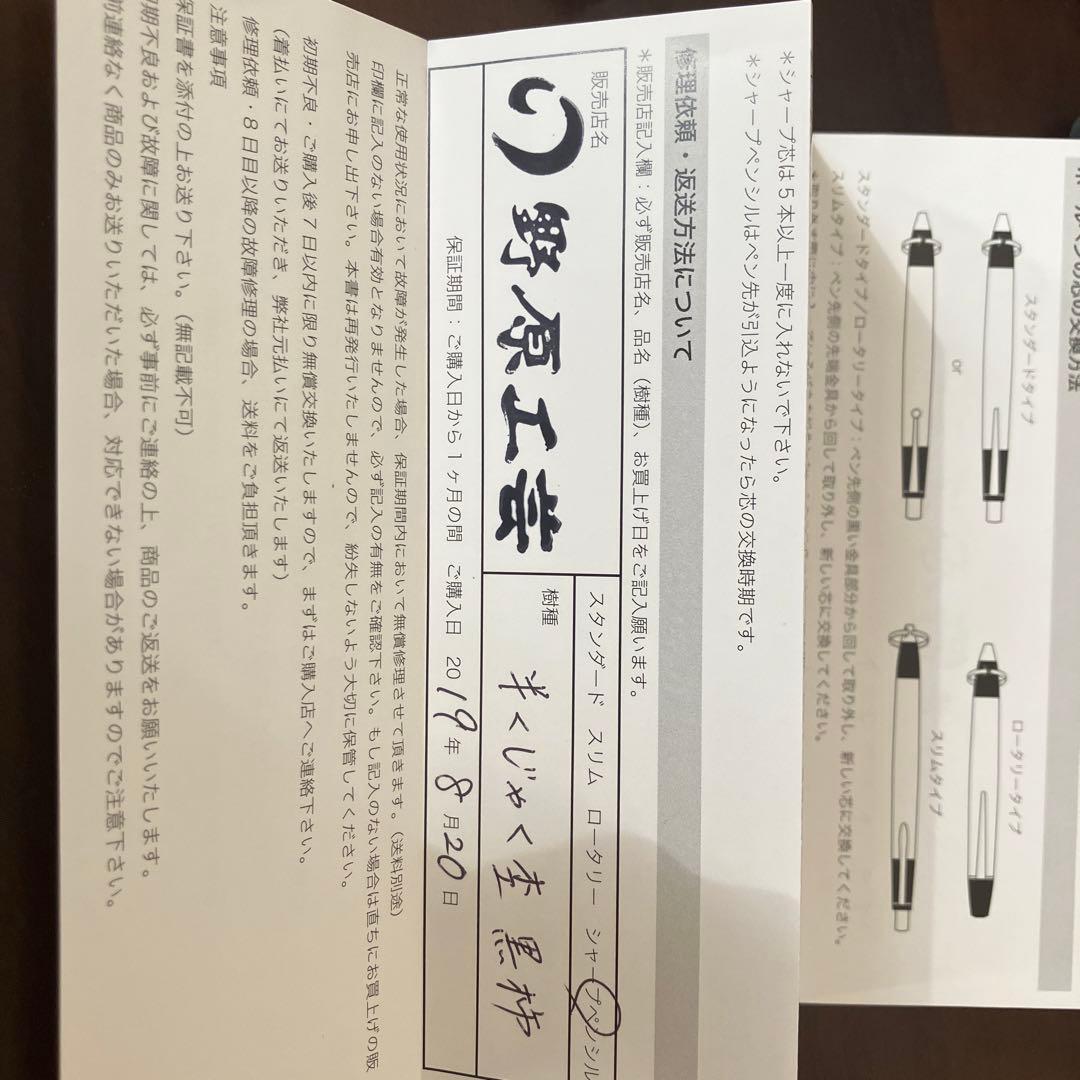 スタンダードタイプ
or
ロータリータイプ
スリムタイプ
スタンダードタイプ/ロータリータイプ:ペン先側の黒い金具部分から回して取り外し、新しい芯に交換してください。
スリムタイプ:ペン先側の先端金具から回して取り外し、新しい芯に交換してください。
*シャープ芯は5本以上一度に入れないで下さい。
*シャープペンシルはペン先が引込ようになったら芯の交換時期です。
修理依頼・返送方法について
*販売店記入欄:必ず販売店名、品名(樹種)、お買上げ日をご記入願います。
販売店名
野原工芸
スタンダード スリム ロータリー シャープペンシル
樹種
半くじゃく杢 黒柿
保証期間:ご購入日から1ヶ月の間 ご購入日 2019年8月20日
正常な使用状況において故障が発生した場合、保証期間内において無償修理させて頂きます。(送料別途)
印欄に記入のない場合有効となりませんので、必ず記入の有無をご確認下さい。もし記入のない場合は直ちにお買上げの販
売店にお申し出下さい。本書は再発行いたしませんので、紛失しないよう大切に保管してください。
初期不良・ご購入後7日以内に限り無償交換いたしますので、まずはご購入店へご連絡下さい。
(着払いにてお送りいただき、弊社元払いにて返送いたします)
修理依頼・8日目以降の故障修理の場合、送料をご負担頂きます。
注意事項
保証書を添付の上お送り下さい。(無記載不可)
期不良および故障に関しては、必ず事前にご連絡の上、商品のご返送をお願いいたします。
前連絡なく商品のみお送りいただいた場合、対応できない場合がありますのでご注意下さい。